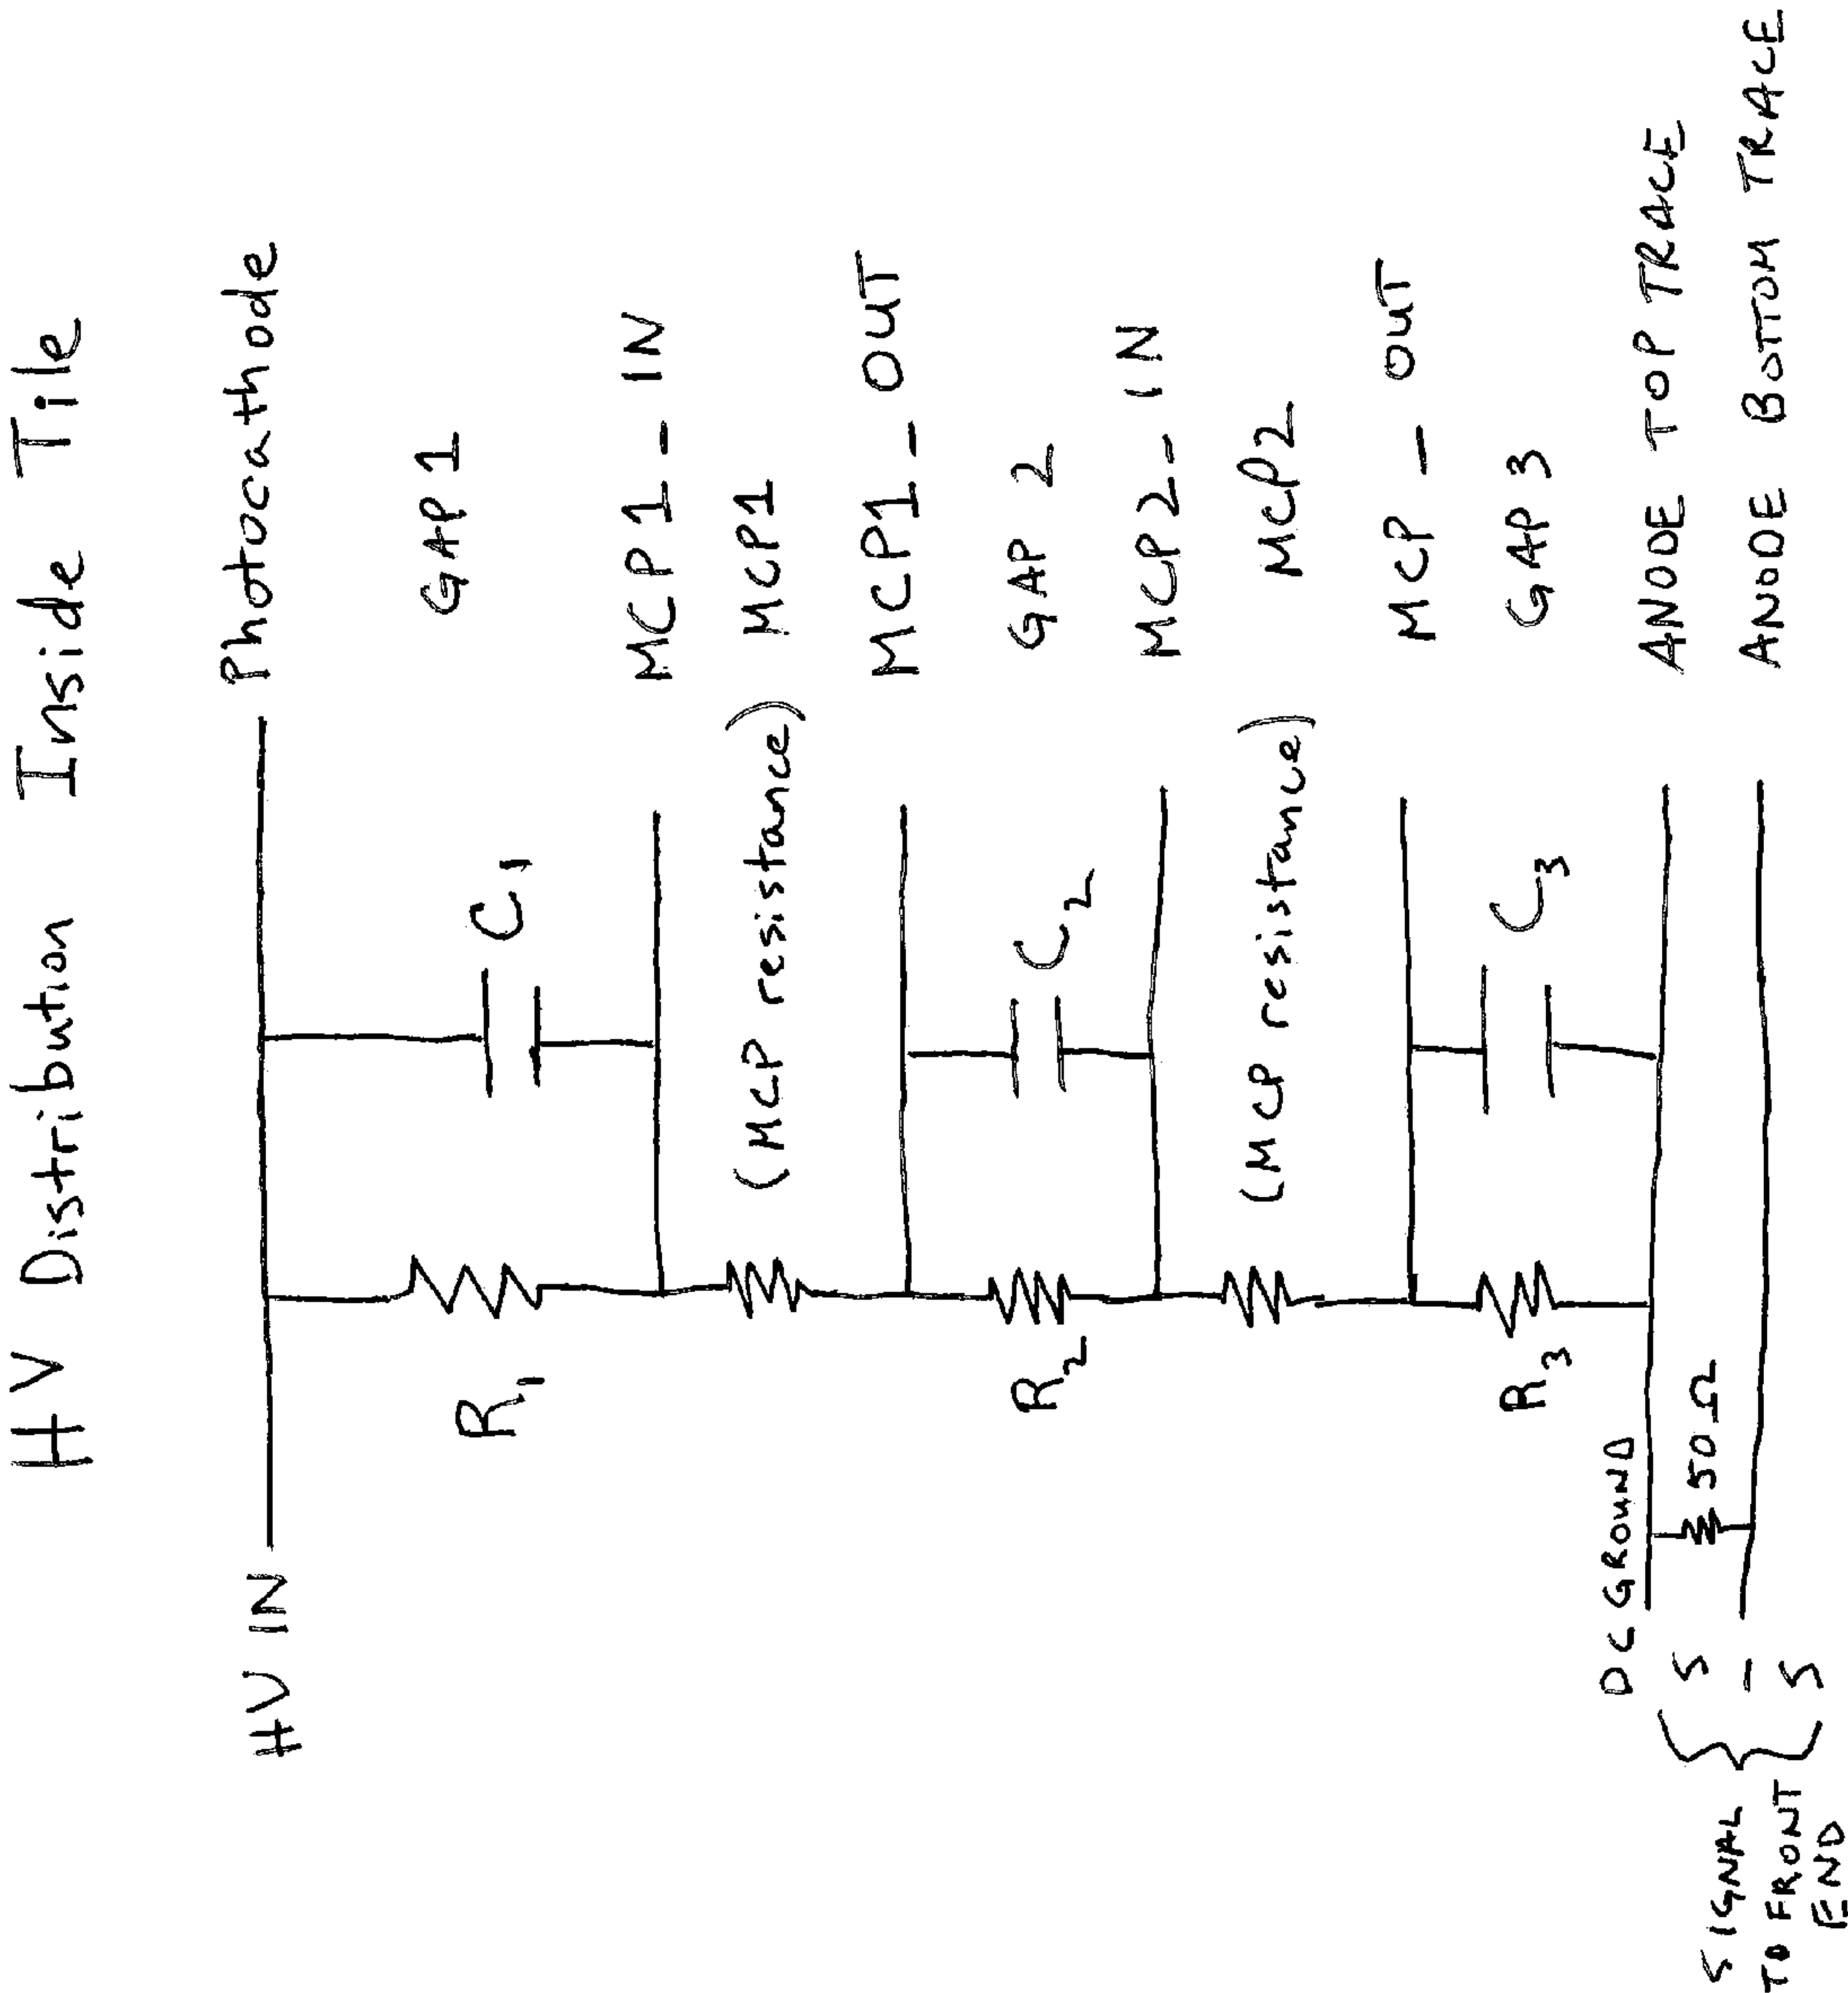 HV Distribution Inside Tile
HV IN
Photocathode
R1
C1
GAP 1
MCP1_IN
(MCP resistance) MCP1
MCP1_OUT
R2
C2
GAP 2
MCP2_IN
(MCP resistance) MCP2
MCP_OUT
R3
C3
GAP 3
DC GROUND
ANODE TOP TRACE
50Ω
ANODE BOTTOM TRACE
SIGNAL
TO FRONT
END
{
S
-
S